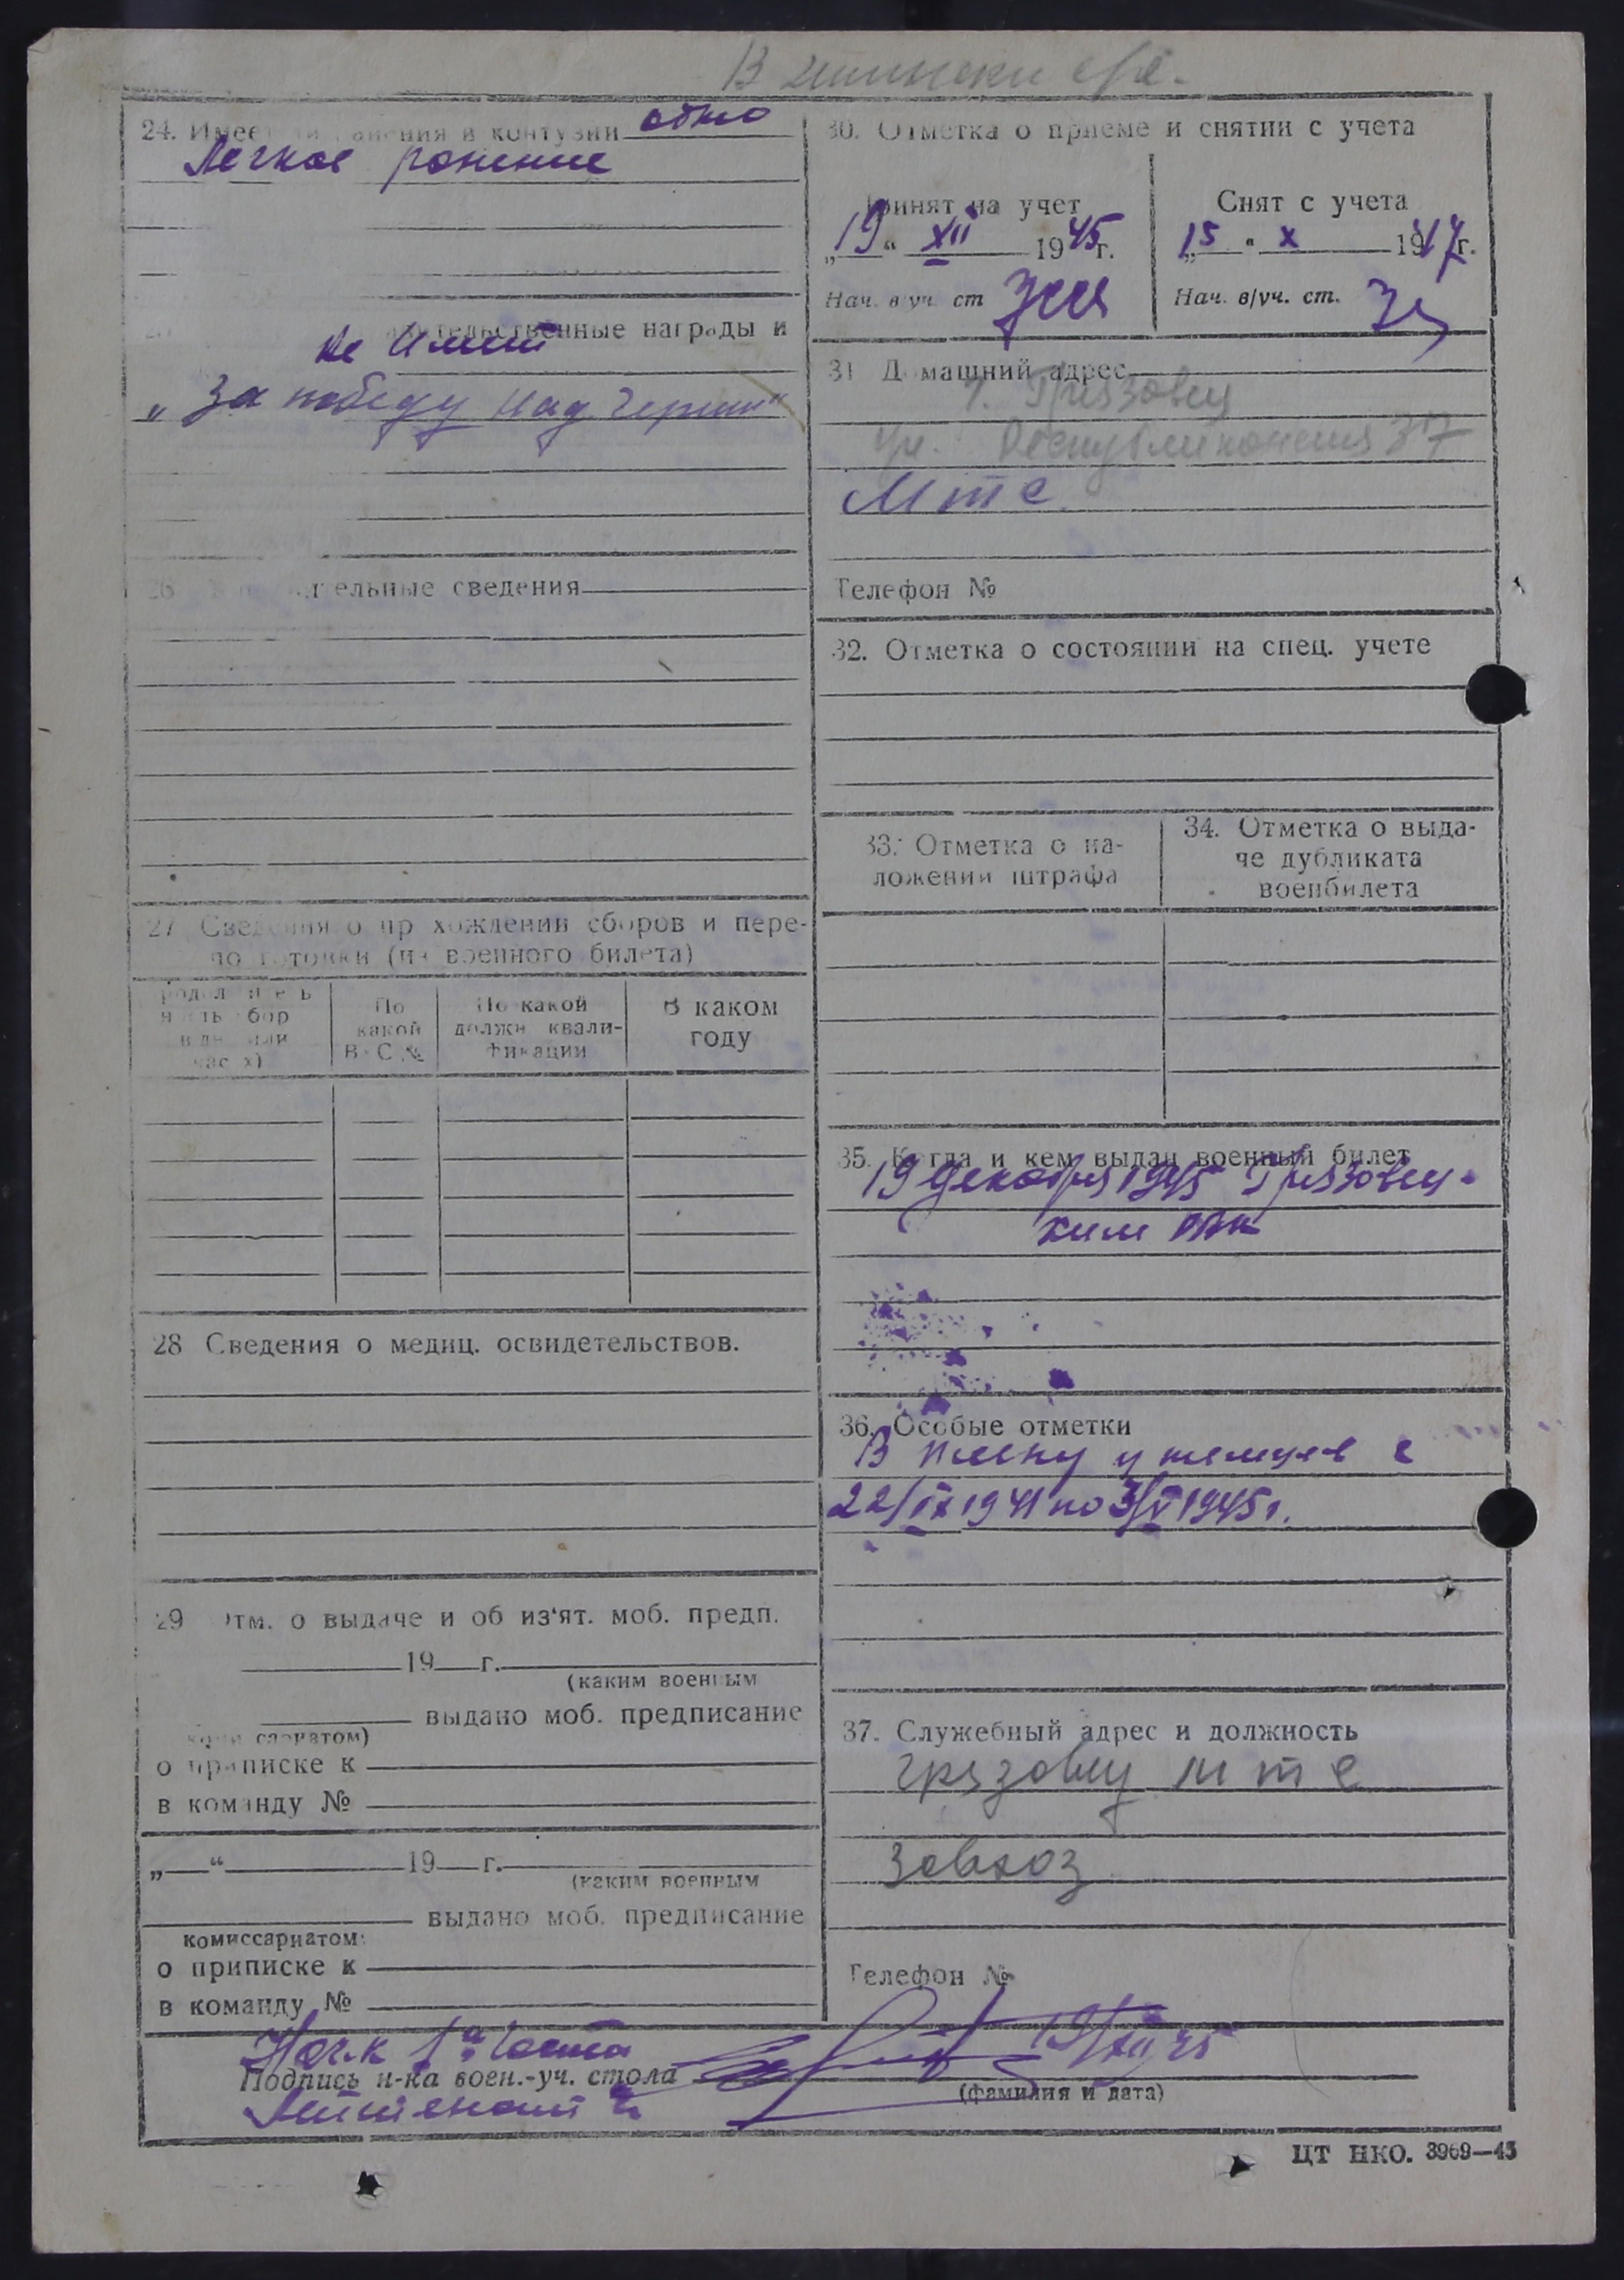 24. Имее ранения и контузии одно
Легкое ранение
тельственные награды и
не имеет
„За победу над Герман“
тельные сведения
27 Сведения о пр хождении сборов и пере-
по готовки (из военного билета)
По
какой
В С №
По какой
должн квали-
фикации
В каком
году
28 Сведения о медиц. освидетельствов.
29 Отм. о выдаче и об из‘ят. моб. предп.
19 г.
(каким военным
выдано моб. предписание
комиссариатом)
о приписке к
в команду №
„ “ 19 г.
(каким военным
выдано моб. предписание
комиссариатом
о приписке к
в команду №
30. Отметка о приеме и снятии с учета
Принят на учет
„19“ XII 1945г.
Нач. в/уч. ст
Снят с учета
„15“ X 1947г.
Нач. в/уч. ст.
31 Домашний адрес
г. Грязовец
ул. Республиканская 37
Мтс.
Телефон №
32. Отметка о состоянии на спец. учете
33. Отметка о на-
ложении штрафа
34. Отметка о выда-
че дубликата
военбилета
35. Когда и кем выдан военный билет
19 декабря 1945 Грязовец-
ким РВК
36. Особые отметки
В плену у немцев с
22/IX 1941 по 3/V 1945г.
37. Служебный адрес и должность
Грязовец мтс
Завхоз
Телефон №
Нач-к 1й части
Подпись н-ка воен.-уч. стола 19/XII 45
(фамилия и дата)
Лейтенант
ЦТ НКО. 3969—45